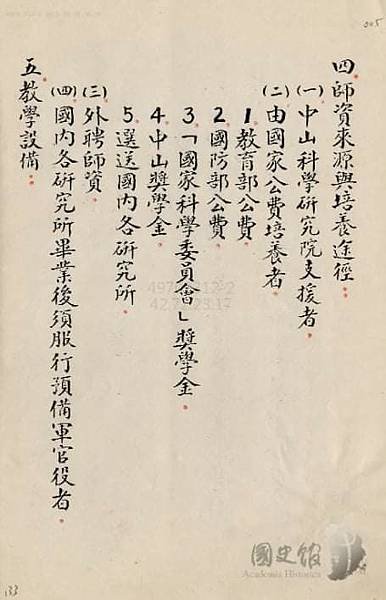 005
四師資來源與培養途徑：
(一)中山科學研究院支援者。
(二)由國家公費培養者：
1.教育部公費。
2.國防部公費。
3.「國家科學委員會」獎學金。
4.中山獎學金。
5.選送國內各研究所。
(三)外聘師資。
(四)國內各研究所畢業後須服行預備軍官役者。
五教學設備：
133
國史館
Academia Historica